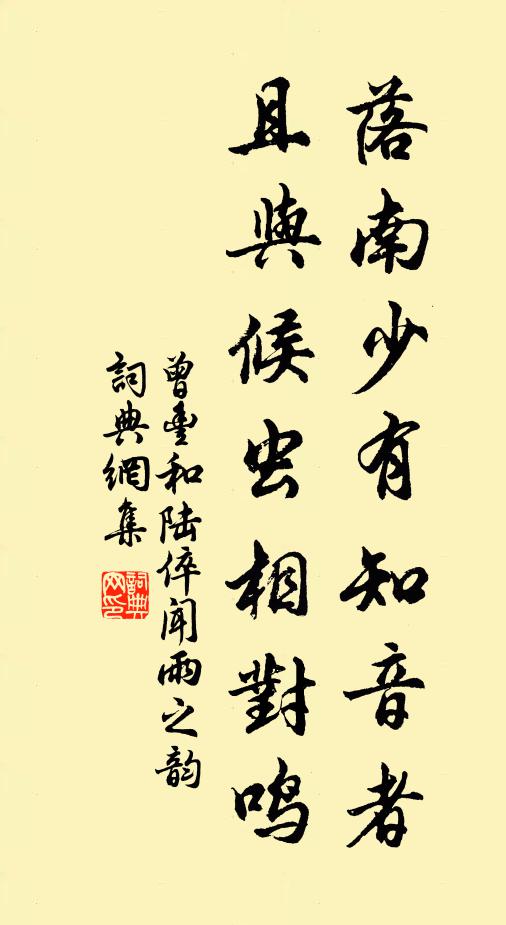 落南少有知音者
且與候虫相對鳴
曾豊和陆倅闻雨之韵
詞典網集
詞典网印